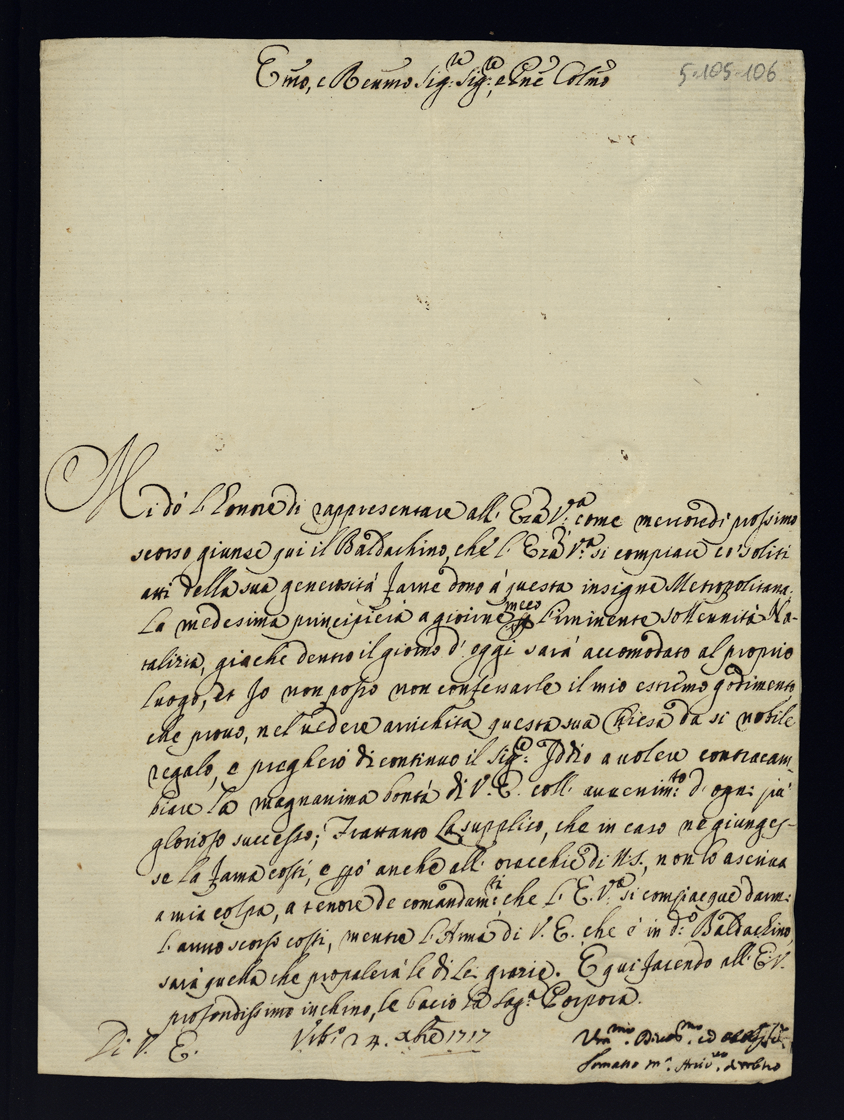 Emõ, e Reuṁo Sig:re Sig:re, e Pñe Colmõ
5-105-106
Mi dò l'honore di rappresentare all' Eza V:ra come mercordì prossimo
scorso giunse qui il Baldachino, che l'Eza V:ra si compiace co' soliti
atti della sua generosità farne dono à questa insigne Metropolitana.
La medesima principierà a gioirne l'iminente sollennità Na-
talizia, giache dentro il giorno d'oggi sarà accomodato al proprio
luogo, et Io non posso non confessarle il mio estremo godimento
che prouo, nel uedere arrichita questa sua Chiesa da si nobile
regalo, e pregherò di continuo il Sig:re Iddio a uolere contracam-
biare la magnanima bontà di V. E. coll' auuenim:to d'ogni più
glorioso successo; Trattanto la supplico, che in caso ne giunges-
se la fama costì, e ppò anche all' orecchie di N.S., non lo ascriua
a mia colpa, a tenore de comandam:ti che l'E. V:ra si compiacque darmi
l'anno scorso costì, mentre l'Arma di V. E. che è in d:o Baldachino,
sarà quella che propalerà le di lei grazie. E qui facendo all' E. V.
profondissimo inchino, le bacio la Sag:a Porpora.
Di V. E.
Vrb:o 24. Xbre 1717
Vm:mo Diuot:mo ed
Tomaso M:a Arciu:o d'Urbino